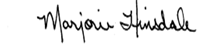 Marjorie Hinsdale